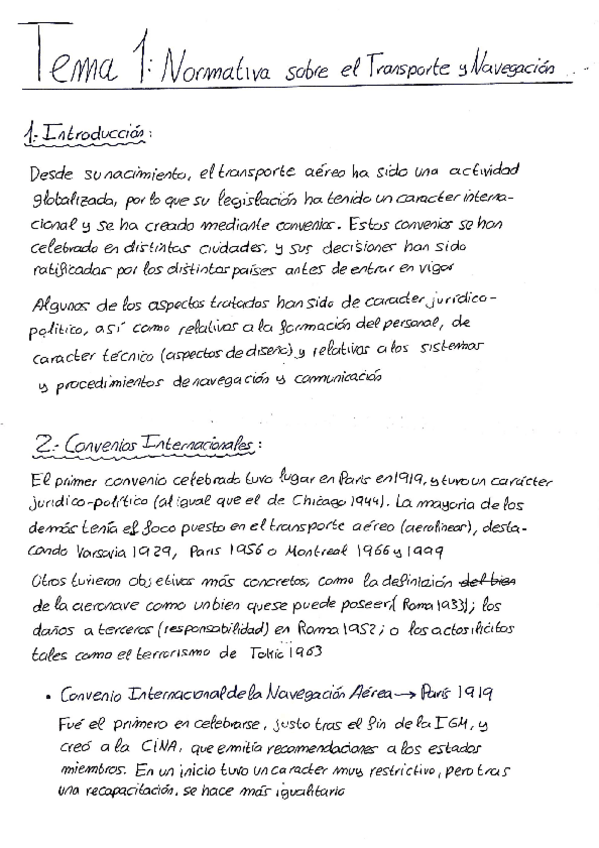 Tema 1: Normativa sobre el Transporte y Navegación
1.- Introducción:
Desde su nacimiento, el transporte aéreo ha sido una actividad
globalizada, por lo que su legislación ha tenido un caracter interna-
cional y se ha creado mediante convenios. Estos convenios se han
celebrado en distintas ciudades, y sus decisiones han sido
ratificadas por los distintos países antes de entrar en vigor
Algunos de los aspectos tratados han sido de caracter jurídico-
político, así como relativos a la formación del personal, de
caracter técnico (aspectos de diseño) y relativos a los sistemas
y procedimientos de navegación y comunicación
2.- Convenios Internacionales:
El primer convenio celebrado tuvo lugar en Paris en 1919, y tuvo un carácter
jurídico-político (al igual que el de Chicago 1944). La mayoria de los
demás tenía el foco puesto en el transporte aéreo (aerolínear), desta-
cando Varsovia 1929, Paris 1956 o Montreal 1966 y 1999
Otros tuvieron objetivos más concretos, como la definición del bien
de la aeronave como un bien que se puede poseer (Roma 1933); los
daños a terceros (responsabilidad) en Roma 1952; o los actos ilícitos
tales como el terrorismo de Tokio 1963
• Convenio Internacional de la Navegación Aérea → París 1919
Fué el primero en celebrarse, justo tras el fin de la IGM, y
creó a la CINA, que emitía recomendaciones a los estados
miembros. En un inicio tuvo un caracter muy restrictivo, pero tras
una recapacitación, se hace más igualitario